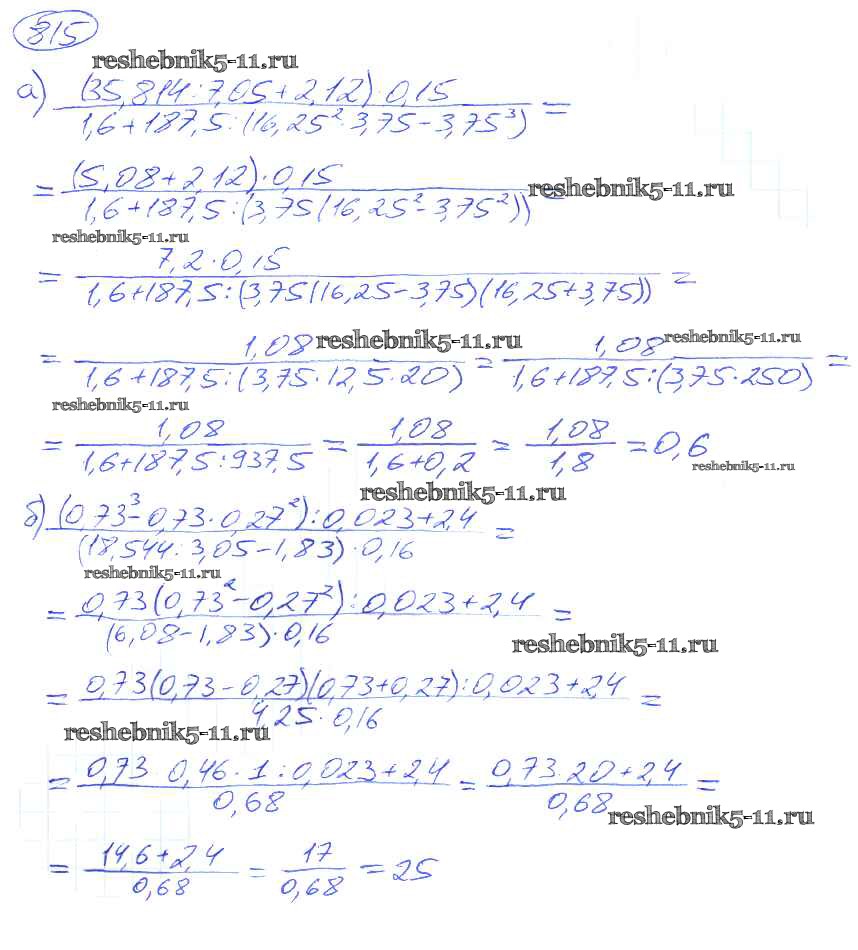 815
reshebnik5-11.ru
а) (35,814:7,05+2,12)·0,15 / 1,6+187,5:(16,25²·3,75-3,75³) =
= (5,08+2,12)·0,15 / 1,6+187,5:(3,75(16,25²-3,75²)) =
reshebnik5-11.ru
reshebnik5-11.ru
= 7,2·0,15 / 1,6+187,5:(3,75(16,25-3,75)(16,25+3,75)) =
= 1,08 / 1,6+187,5:(3,75·12,5·20) = 1,08 / 1,6+187,5:(3,75·250) =
reshebnik5-11.ru
reshebnik5-11.ru
reshebnik5-11.ru
= 1,08 / 1,6+187,5:937,5 = 1,08 / 1,6+0,2 = 1,08 / 1,8 = 0,6
reshebnik5-11.ru
reshebnik5-11.ru
б) (0,73³-0,73·0,27²):0,023+2,4 / (18,544:3,05-1,83)·0,16 =
reshebnik5-11.ru
= 0,73(0,73²-0,27²):0,023+2,4 / (6,08-1,83)·0,16 =
reshebnik5-11.ru
= 0,73(0,73-0,27)(0,73+0,27):0,023+2,4 / 4,25·0,16 =
reshebnik5-11.ru
= 0,73·0,46·1:0,023+2,4 / 0,68 = 0,73·20+2,4 / 0,68 =
reshebnik5-11.ru
= 14,6+2,4 / 0,68 = 17 / 0,68 = 25